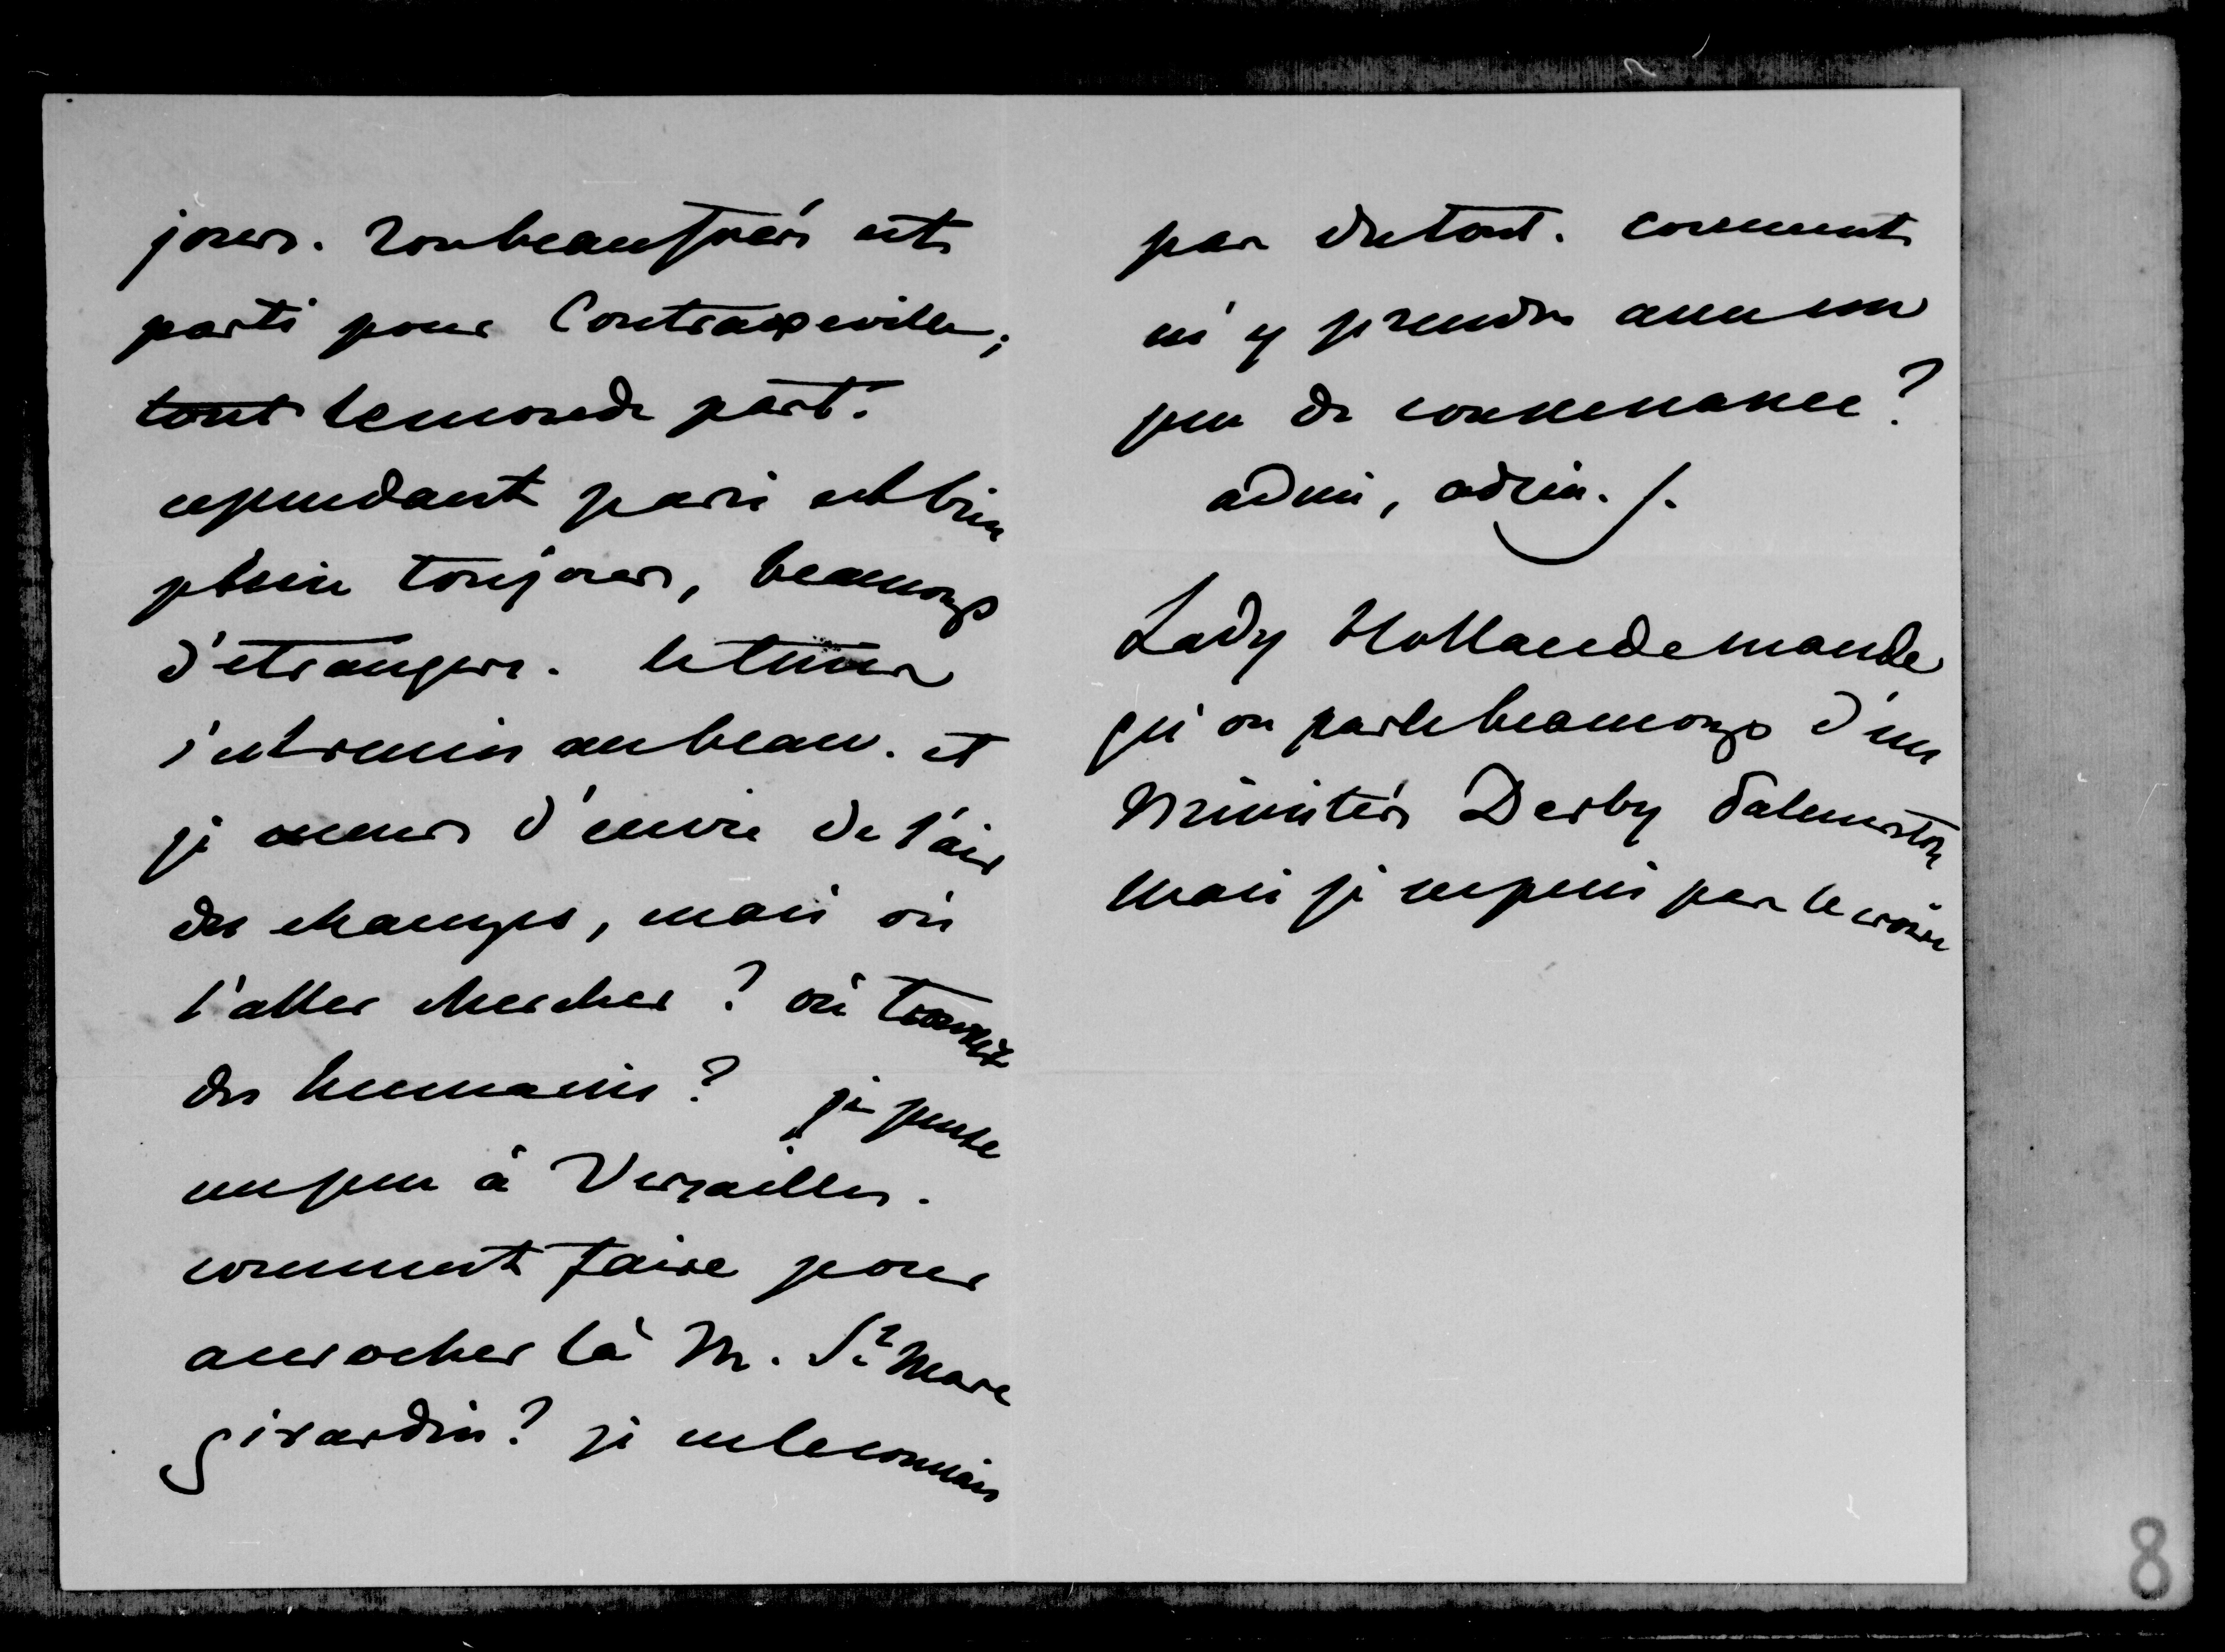 jours. Son beau frère est
parti pour Contrexeville,
tout le monde part.
cependant paris est bien
plein toujours, beaucoup
d'etrangers. le tems
s'est remis au beau. et
je meurs d'envie de l'air
des champs, mais où
l'aller chercher ? où trouver
des humains ? je pense
un peu à Versailles.
comment faire pour
accrocher là M. St Marc
girardin ? je ne le connais
pas du tout. comment
m'y prendre avec un
peu de convenance ?
adieu, adieu. /.
Lady Hollande mande
qu'on parle beaucoup d'un
Ministère Derby Palmerston
mais je ne puis pas le croire
8